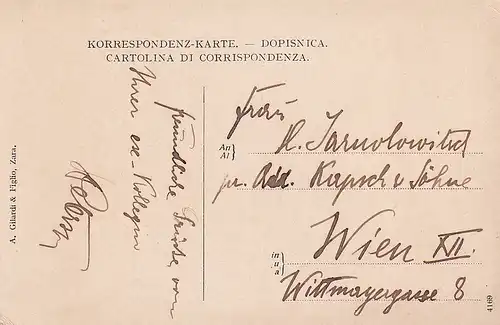 KORRESPONDENZ-KARTE. — DOPISNICA.
CARTOLINA DI CORRISPONDENZA.
freundliche Grüße, von
Ihrer ex-Kollegin
A. Gilardi & Figlio, Zara.
Frau
H.
An
Al
pr. Adr. Kapsch & Söhne
in
u
a
Wien XII.
Wittmayergasse 8
4169